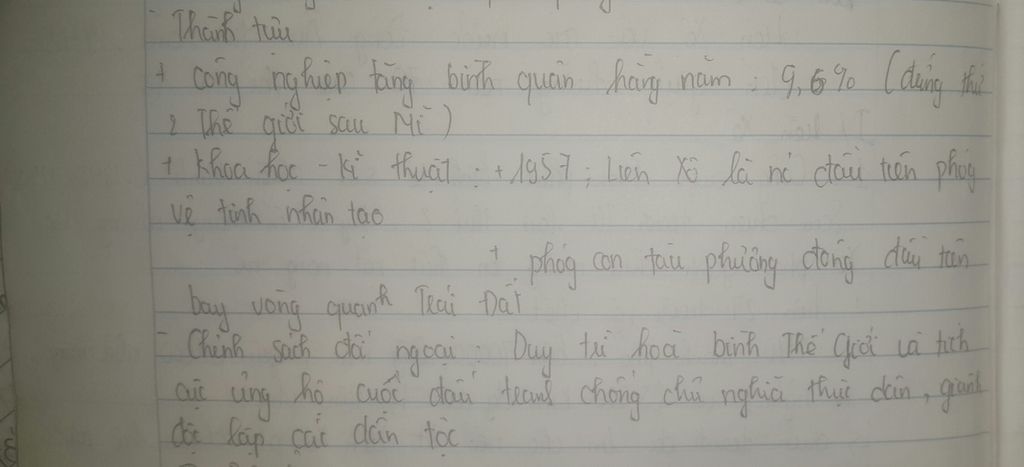 - Thành tựu
+ Công nghiệp tăng bình quân hàng năm : 9,6% (đứng thứ
2 Thế giới sau Mĩ)
+ Khoa học - Kĩ thuật : + 1957 ; Liên Xô là nc đầu tiên phóg
vệ tinh nhân tạo
+ phóg con tàu phương đông đầu tiên
bay vòng quanh Trái Đất
- Chính sách đối ngoại : Duy trì hoà bình Thế Giới và tích
cực ủng hộ cuộc đấu tranh chống chủ nghĩa thực dân, giành
độc lập các dân tộc